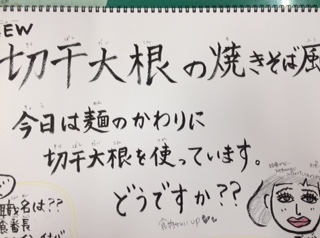 NEW
切干大根の焼きそば風
今日は麺のかわりに
切干大根を使っています。
どうですか??
職名は??